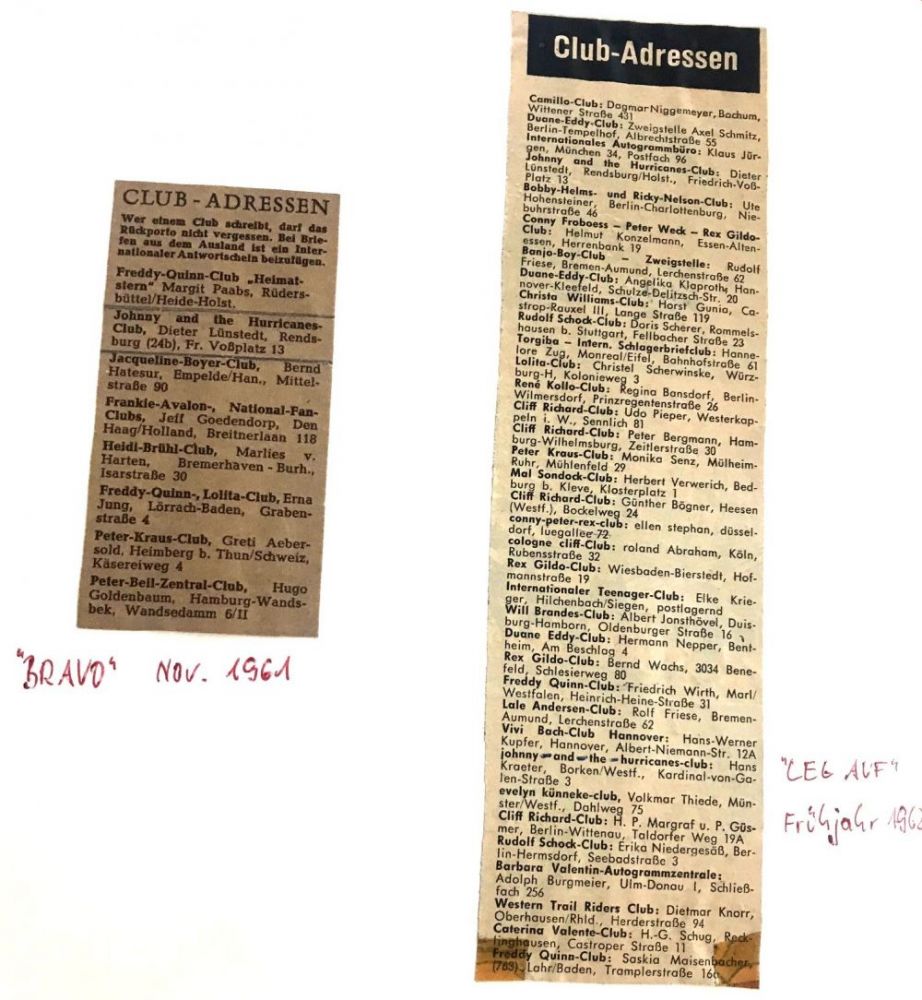 CLUB - ADRESSEN
Wer einem Club schreibt, darf das
Rückporto nicht vergessen. Bei Brie-
fen aus dem Ausland ist ein Inter-
nationaler Antwortschein beizufügen.
Freddy-Quinn-Club „Heimat-
stern" Margit Paabs, Rüders-
büttel/Heide-Holst.
Johnny and the Hurricanes-
Club, Dieter Lünstedt, Rends-
burg (24b), Fr. Voßplatz 13
Jacqueline-Boyer-Club, Bernd
Hatesur, Empelde/Han., Mittel-
straße 90
Frankie-Avalon-, National-Fan-
Clubs, Jeff Goedendorp, Den
Haag/Holland, Breitnerlaan 118
Heidi-Brühl-Club, Marlies v.
Harten, Bremerhaven - Burh.,
Isarstraße 30
Freddy-Quinn-, Lolita-Club, Erna
Jung, Lörrach-Baden, Graben-
straße 4
Peter-Kraus-Club, Greti Aeber-
sold, Heimberg b. Thun/Schweiz,
Käsereiweg 4
Peter-Beil-Zentral-Club, Hugo
Goldenbaum, Hamburg-Wands-
bek, Wandsedamm 6/II
"BRAVO" NOV. 1961
Club-Adressen
Camillo-Club: Dagmar Niggemeyer, Bochum,
Wittener Straße 431
Duane-Eddy-Club: Zweigstelle Axel Schmitz,
Berlin-Tempelhof, Albrechtstraße 55
Internationales Autogrammbüro: Klaus Jür-
gen, München 34, Postfach 96
Johnny and the Hurricanes-Club: Dieter
Lünstedt, Rendsburg/Holst., Friedrich-Voß-
Platz 13
Bobby-Helms- und Ricky-Nelson-Club: Ute
Hohensteiner, Berlin-Charlottenburg, Nie-
buhrstraße 46
Conny Froboess – Peter Weck – Rex Gildo-
Club: Helmut Konzelmann, Essen-Alten-
essen, Herrenbank 19
Banjo-Boy-Club – Zweigstelle: Rudolf
Friese, Bremen-Aumund, Lerchenstraße 62
Duane-Eddy-Club: Angelika Klaproth, Han-
nover-Kleefeld, Schulze-Delitzsch-Str. 20
Christa Williams-Club: Horst Gunia, Ca-
strop-Rauxel III, Lange Straße 119
Rudolf Schock-Club: Doris Scherer, Rommels-
hausen b. Stuttgart, Fellbacher Straße 23
Torgiba – Intern. Schlagerbriefclub: Hanne-
lore Zug, Monreal/Eifel, Bahnhofstraße 61
Lolita-Club: Christel Scherwinske, Würz-
burg-H, Kolonieweg 3
René Kollo-Club: Regina Bansdorf, Berlin-
Wilmersdorf, Prinzregentenstraße 26
Cliff Richard-Club: Udo Pieper, Westerkap-
peln i. W., Sennlich 81
Cliff Richard-Club: Peter Bergmann, Ham-
burg-Wilhelmsburg, Zeitlerstraße 30
Peter Kraus-Club: Monika Senz, Mülheim-
Ruhr, Mühlenfeld 29
Mal Sondock-Club: Herbert Verwerich, Bed-
burg b. Kleve, Klosterplatz 1
Cliff Richard-Club: Günther Bögner, Heesen
(Westf.), Bockelweg 24
conny-peter-rex-club: ellen stephan, düssel-
dorf, luegallee 72
cologne cliff-Club: roland Abraham, Köln,
Rubensstraße 32
Rex Gildo-Club: Wiesbaden-Bierstedt, Hof-
mannstraße 19
Internationaler Teenager-Club: Elke Krie-
ger, Hilchenbach/Siegen, postlagernd
Will Brandes-Club: Albert Jonsthövel, Duis-
burg-Hamborn, Oldenburger Straße 16
Duane Eddy-Club: Hermann Nepper, Bent-
heim, Am Beschlag 4
Rex Gildo-Club: Bernd Wachs, 3034 Bene-
feld, Schlesierweg 80
Freddy Quinn-Club: Friedrich Wirth, Marl/
Westfalen, Heinrich-Heine-Straße 31
Lale Andersen-Club: Rolf Friese, Bremen-
Aumund, Lerchenstraße 62
Vivi Bach-Club Hannover: Hans-Werner
Kupfer, Hannover, Albert-Niemann-Str. 12A
johnny-and-the-hurricanes-club: Hans
Kraeter, Borken/Westf., Kardinal-von-Ga-
len-Straße 3
evelyn künneke-club, Volkmar Thiede, Mün-
ster/Westf., Dahlweg 75
Cliff Richard-Club: H. P. Margraf u. P. Güs-
mer, Berlin-Wittenau, Taldorfer Weg 19A
Rudolf Schock-Club: Erika Niedergesäß, Ber-
lin-Hermsdorf, Seebadstraße 3
Barbara Valentin-Autogrammzentrale:
Adolph Burgmeier, Ulm-Donau I, Schließ-
fach 256
Western Trail Riders Club: Dietmar Knorr,
Oberhausen/Rhld., Herderstraße 94
Caterina Valente-Club: H.-G. Schug, Reck-
linghausen, Castroper Straße 11
Freddy Quinn-Club: Saskia Maisenbacher,
(763) Lahr/Baden, Tramplerstraße 16a
"LEG AUF"
Frühjahr